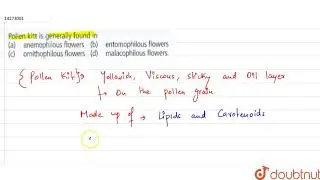 14273001
Pollen kitt is generally found in
(a) anemophilous flowers (b) entomophilous flowers
(c) ornithophilous flowers (d) malacophilous flowers.
{Pollen Kit}→ Yellowish, Viscous, sticky and Oil layer
↳ On the pollen grain
Made up of → Lipids and Carotenoids
doubtnut